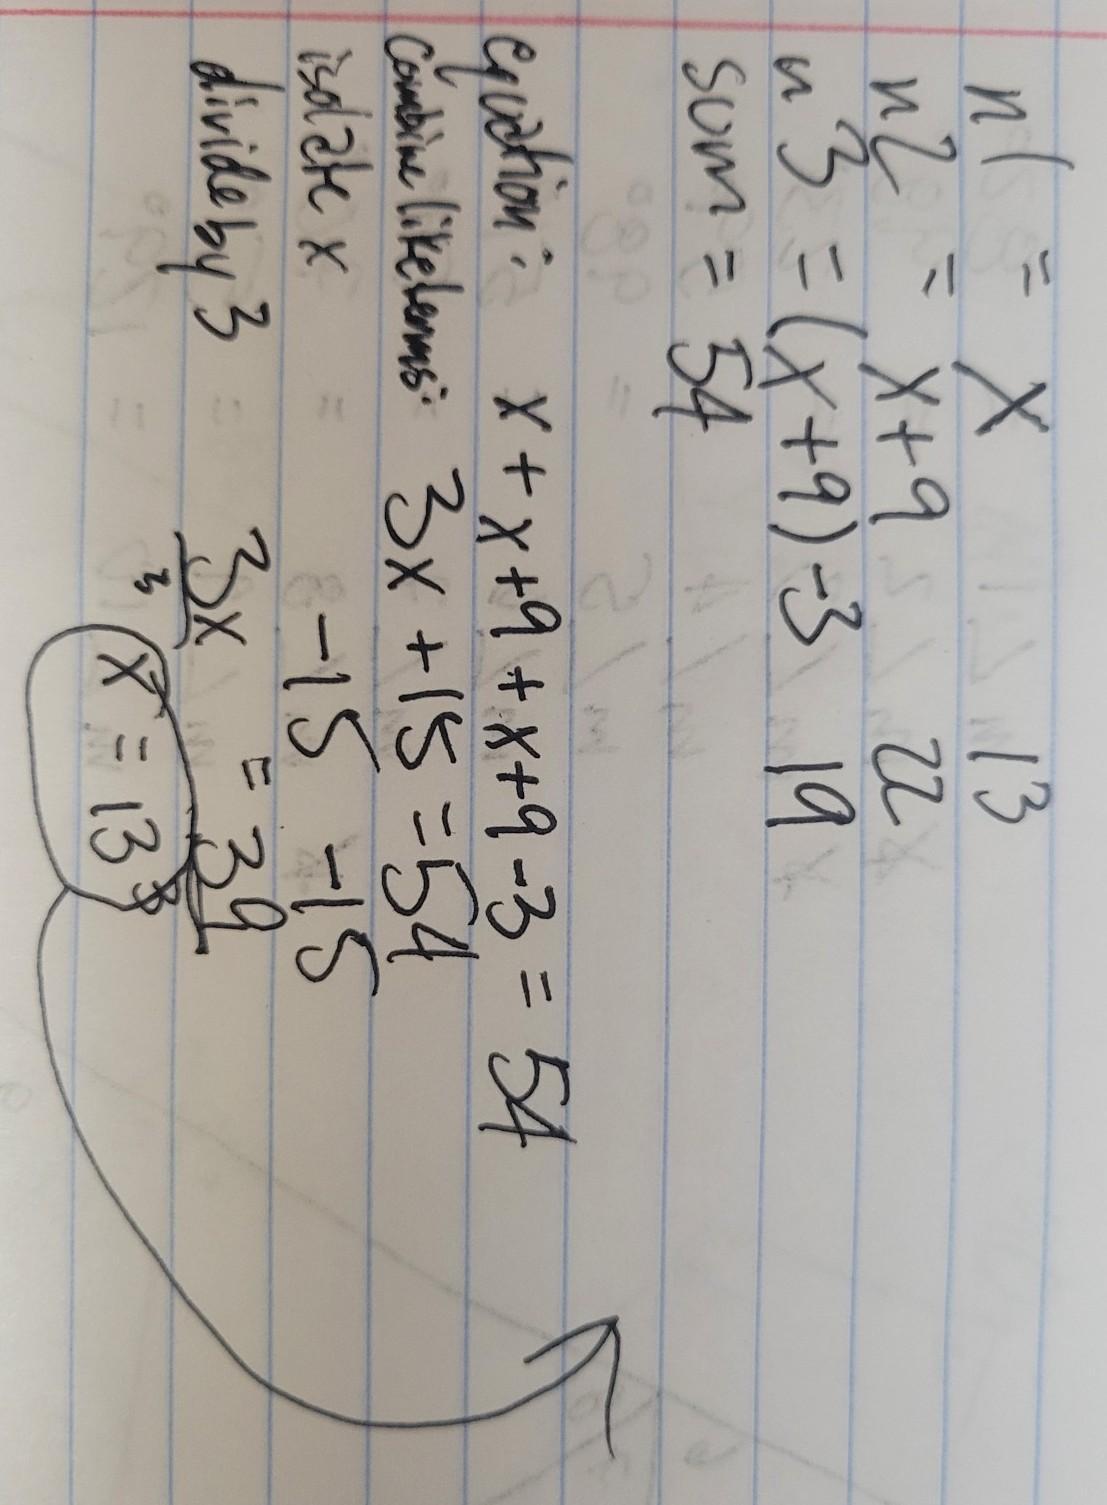 n1 = x 13
n2 = x+9 22
n3 = (x+9)-3 19
sum = 54
equation: x + x+9 + x+9-3 = 54
combine like terms: 3x + 15 = 54
isolate x -15 -15
divide by 3 3x = 39
3 3
x = 13